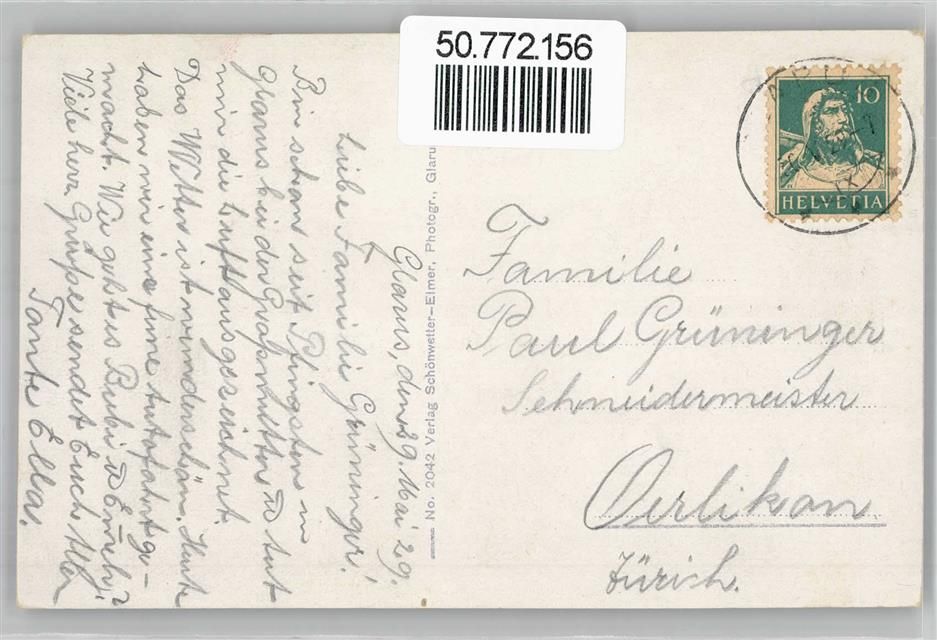 50.772.156
Glarus, den 29. Mai 29.
Liebe Familie Grüninger!
Bin schon seit Pfingsten in
Glarus bei der Großmutter, & tut
mir die Luft ausgezeichnet.
Das Wetter ist wunderschön. Heute
haben wir eine feine Autofahrt ge-
macht. Wie geht es Bubi & Emeli?
Viele herz. Grüsse sendet Euch Allen
Tante Ella.
No. 2042 Verlag Schönwetter–Elmer, Photogr., Glaru
10
HELVETIA
Familie
Paul Grüninger
Schneidermeister
Oerlikon
Zürich.